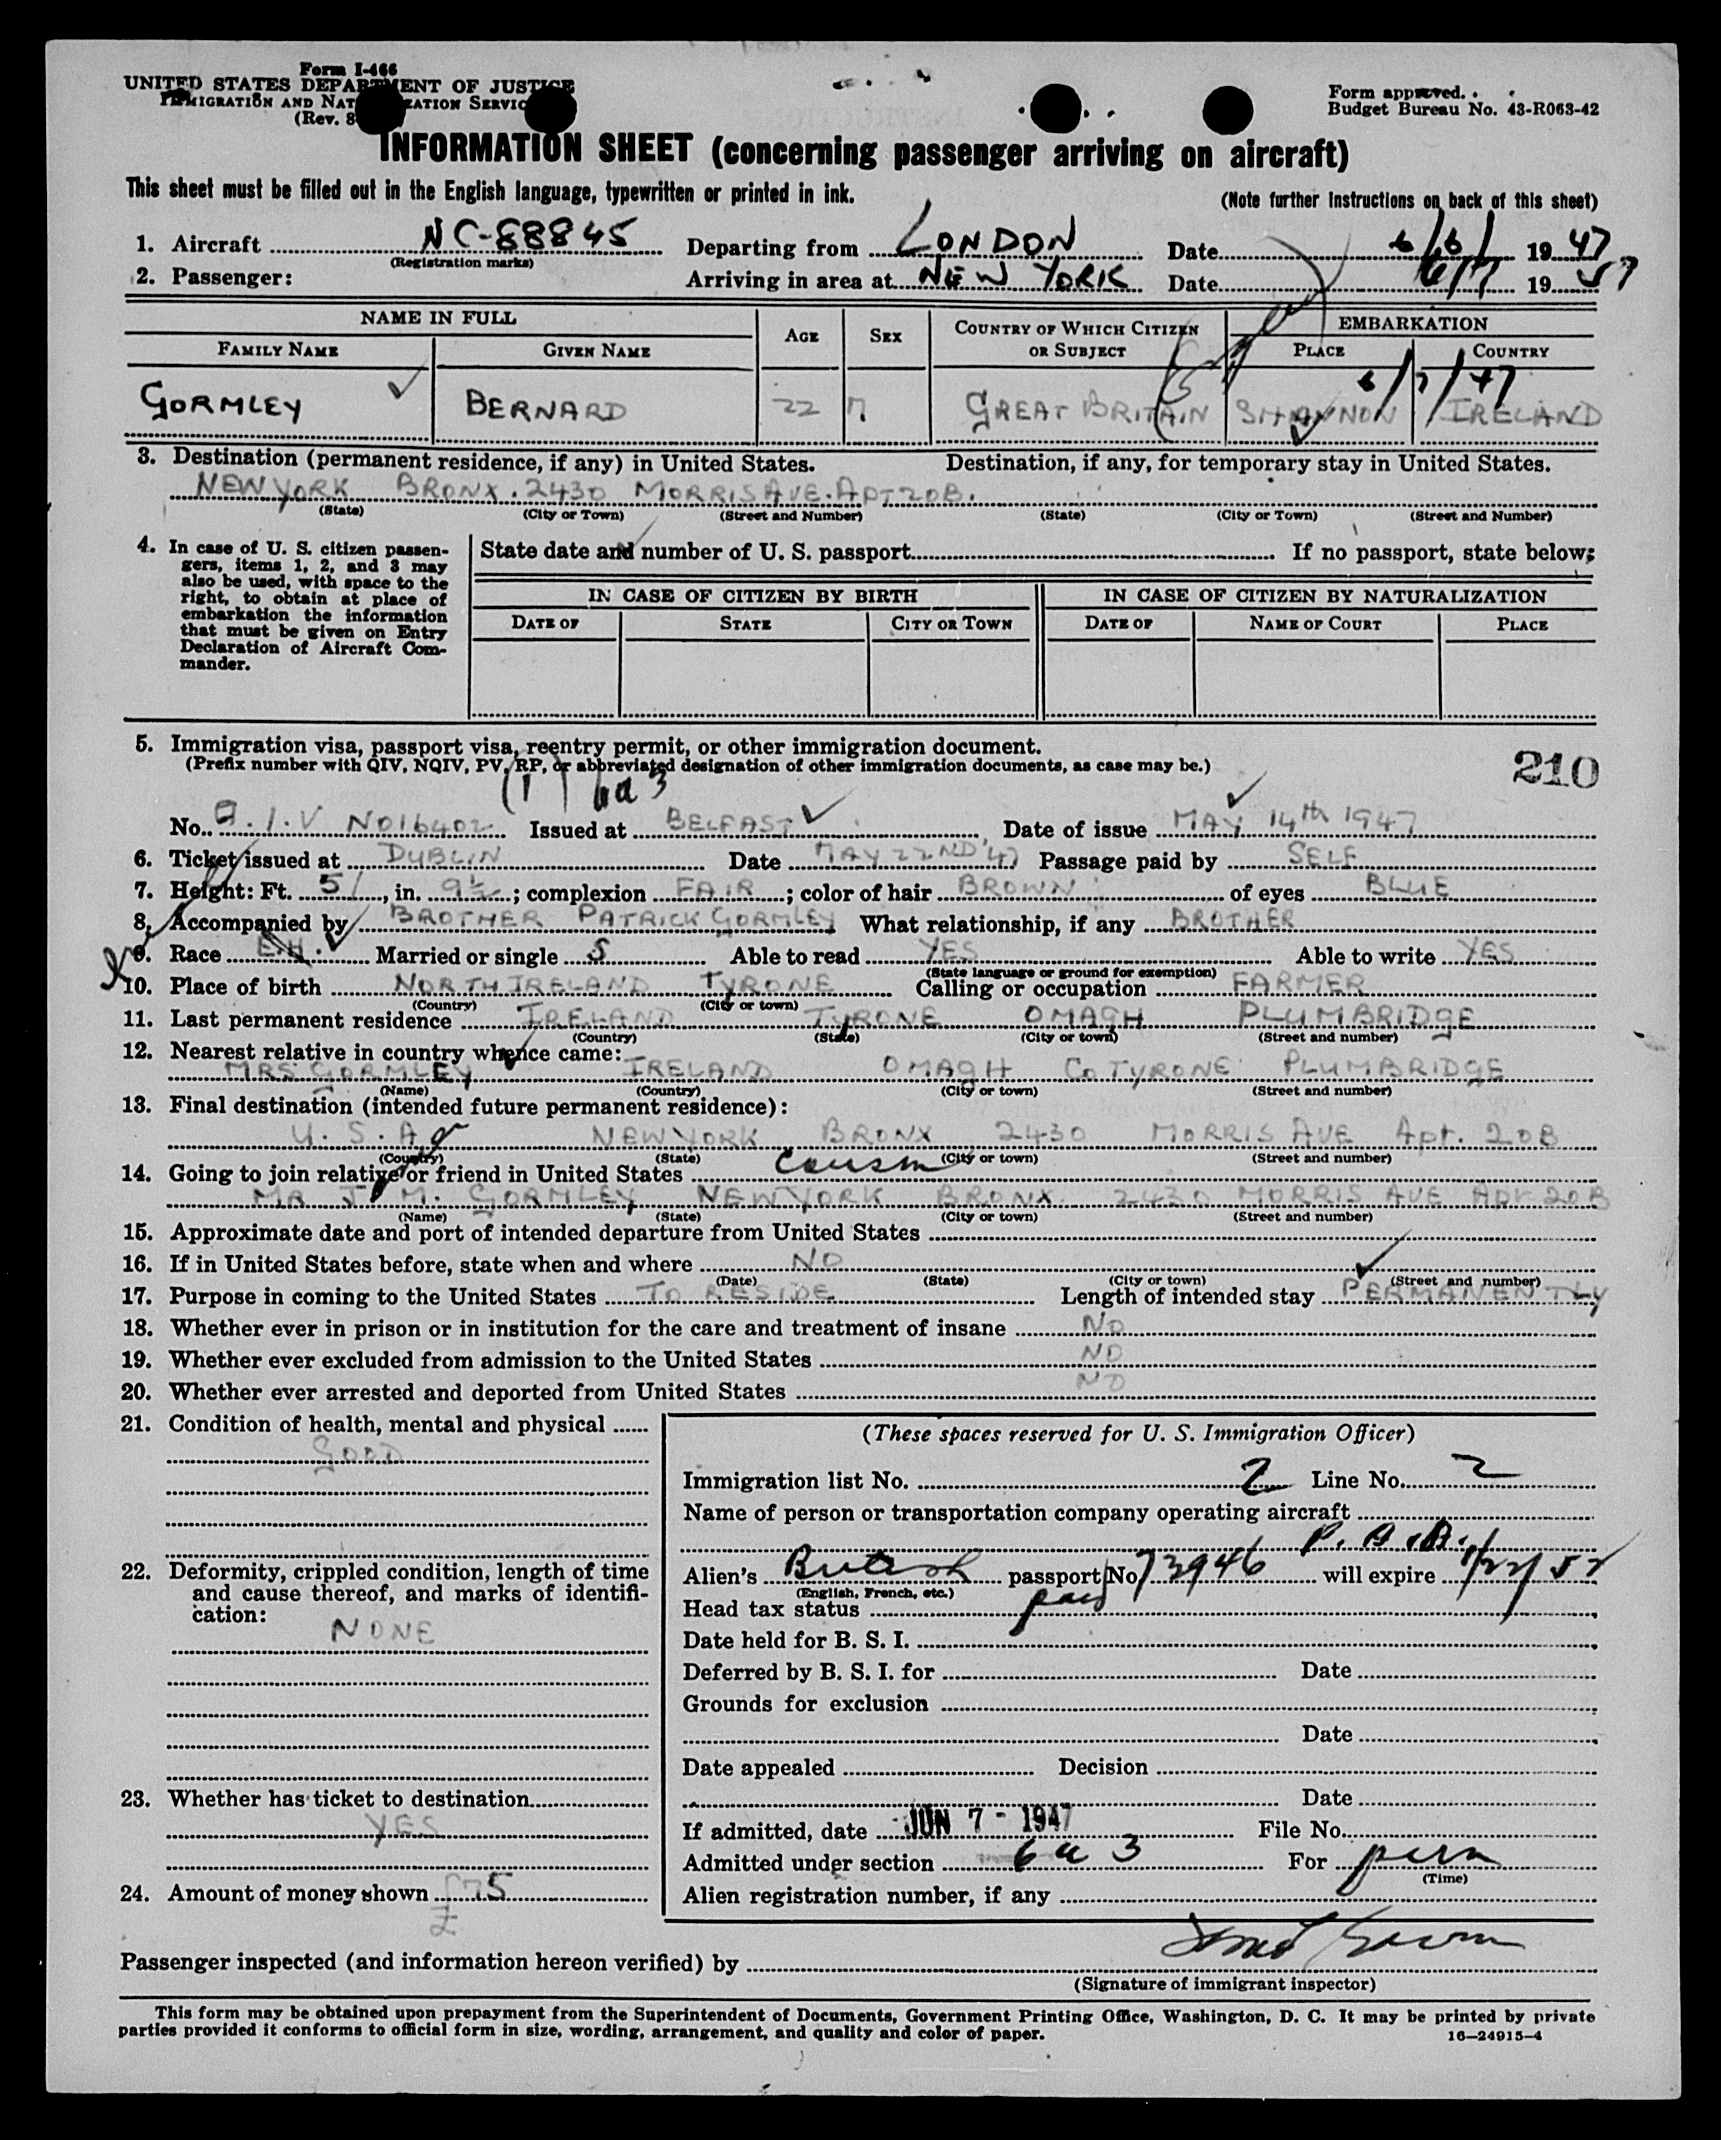 Form I-466
UNITED STATES DEPARTMENT OF JUSTICE
IMMIGRATION AND NATURALIZATION SERVICE
(Rev. 8
Form approved.
Budget Bureau No. 43-R063-42
INFORMATION SHEET (concerning passenger arriving on aircraft)
This sheet must be filled out in the English language, typewritten or printed in ink.
(Note further instructions on back of this sheet)
1. Aircraft NC-88845 Departing from LONDON Date 6/6/ 1947
(Registration marks)
2. Passenger: Arriving in area at NEW YORK Date 6/7 19
NAME IN FULL AGE SEX COUNTRY OF WHICH CITIZEN OR SUBJECT EMBARKATION
FAMILY NAME GIVEN NAME PLACE COUNTRY
6/7/47
GORMLEY BERNARD 22 M GREAT BRITAIN SHANNON IRELAND
3. Destination (permanent residence, if any) in United States. Destination, if any, for temporary stay in United States.
NEW YORK BRONX. 2430 MORRIS AVE. APT 20B.
(State) (City or Town) (Street and Number) (State) (City or Town) (Street and Number)
4. In case of U. S. citizen passengers, items 1, 2, and 3 may also be used, with space to the right, to obtain at place of embarkation the information that must be given on Entry Declaration of Aircraft Commander.
State date and number of U. S. passport If no passport, state below:
IN CASE OF CITIZEN BY BIRTH IN CASE OF CITIZEN BY NATURALIZATION
DATE OF STATE CITY OR TOWN DATE OF NAME OF COURT PLACE
5. Immigration visa, passport visa, reentry permit, or other immigration document.
(Prefix number with QIV, NQIV, PV, RP, or abbreviated designation of other immigration documents, as case may be.)
210
(1) 6a3
No. Q.I.V NO16402 Issued at BELFAST Date of issue MAY 14th 1947
6. Ticket issued at DUBLIN Date MAY 22ND '47 Passage paid by SELF
7. Height: Ft. 5, in. 9½; complexion FAIR; color of hair BROWN of eyes BLUE
8. Accompanied by BROTHER PATRICK GORMLEY What relationship, if any BROTHER
9. Race Married or single S Able to read YES Able to write YES
(State language or ground for exemption)
10. Place of birth NORTH IRELAND TYRONE Calling or occupation FARMER
(Country) (City or town)
11. Last permanent residence IRELAND TYRONE OMAGH PLUMBRIDGE
(Country) (State) (City or town) (Street and number)
12. Nearest relative in country whence came:
MRS GORMLEY IRELAND OMAGH CO TYRONE PLUMBRIDGE
(Name) (Country) (City or town) (Street and number)
13. Final destination (intended future permanent residence):
U.S.A NEW YORK BRONX 2430 MORRIS AVE Apt. 20B
(Country) (State) (City or town) (Street and number)
14. Going to join relative or friend in United States cousin
MR J. M. GORMLEY NEW YORK BRONX 2430 MORRIS AVE APT. 20B
(Name) (State) (City or town) (Street and number)
15. Approximate date and port of intended departure from United States
16. If in United States before, state when and where NO
(Date) (State) (City or town) (Street and number)
17. Purpose in coming to the United States TO RESIDE Length of intended stay PERMANENTLY
18. Whether ever in prison or in institution for the care and treatment of insane NO
19. Whether ever excluded from admission to the United States NO
20. Whether ever arrested and deported from United States NO
21. Condition of health, mental and physical
GOOD
22. Deformity, crippled condition, length of time and cause thereof, and marks of identification:
NONE
23. Whether has ticket to destination
YES
24. Amount of money shown 75
£
(These spaces reserved for U. S. Immigration Officer)
Immigration list No. 2 Line No. 2
Name of person or transportation company operating aircraft
P.A.A.
Alien's British passport No 73946 will expire 1/22/52
(English, French, etc.)
Head tax status paid
Date held for B. S. I.
Deferred by B. S. I. for Date
Grounds for exclusion
Date
Date appealed Decision
Date
If admitted, date JUN 7 - 1947 File No.
Admitted under section 6a3 For perm
(Time)
Alien registration number, if any
Passenger inspected (and information hereon verified) by
(Signature of immigrant inspector)
This form may be obtained upon prepayment from the Superintendent of Documents, Government Printing Office, Washington, D. C. It may be printed by private
parties provided it conforms to official form in size, wording, arrangement, and quality and color of paper.
16—24915-4